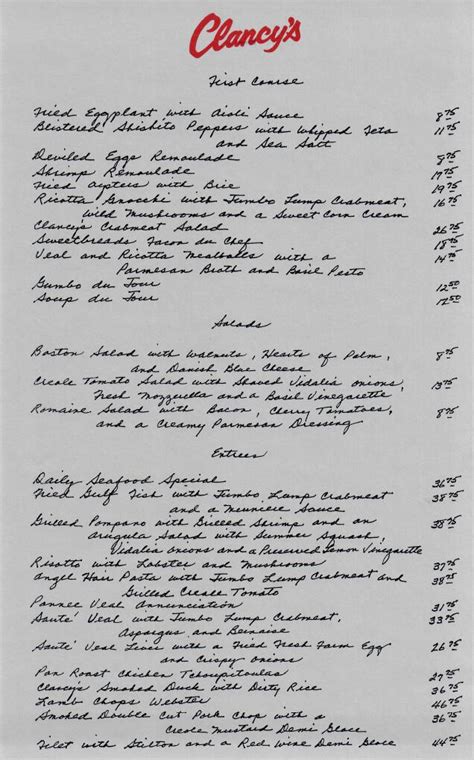 Clancy's
First Course
Fried Eggplant with Aioli Sauce 8 75
Blistered Shishito Peppers with Whipped Feta 11 75
and Sea Salt
Deviled Eggs Remoulade 8 75
Shrimp Remoulade 17 75
Fried Oysters with Brie 19 75
Ricotta Gnocchi with Jumbo Lump Crabmeat, 16 75
wild Mushrooms and a Sweet Corn Cream
Clancy's Crabmeat Salad 26 75
Sweetbreads Facon du Chef 18 75
Veal and Ricotta Meatballs with a 14 75
Parmesan Broth and Basil Pesto
Gumbo du Jour 12 50
Soup du Jour 12 50
Salads
Boston Salad with Walnuts, Hearts of Palm, 8 75
and Danish Blue Cheese
Creole Tomato Salad with Shaved Vidalia onions, 13 75
Fresh Mozzerella and a Basil Vinegarette
Romaine Salad with Bacon, Cherry Tomatoes, 8 75
and a Creamy Parmesan Dressing
Entrees
Daily Seafood Special 36 75
Fried Gulf Fish with Jumbo Lump Crabmeat 38 75
and a Meuniere Sauce
Grilled Pompano with Grilled Shrimp and an 38 75
arugula Salad with Summer Squash,
Vidalia onions and a Preserved Lemon Vinegarette
Risotto with Lobster and Mushrooms 37 75
Angel Hair Pasta with Jumbo Lump Crabmeat and 38 75
Grilled Creole Tomato
Pannee Veal Annunciation 31 75
Sauté Veal with Jumbo Lump Crabmeat, 33 75
Asparagus and Bernaise
Sauté Veal Liver with a Fried Fresh Farm Egg 26 75
and Crispy onions
Pan Roast Chicken Tchoupitoulas 27 75
Clancy's Smoked Duck with Dirty Rice 36 75
Lamb Chops Webster 46 75
Smoked Double Cut Pork Chop with a 36 75
Creole Mustard Demi Glace
Filet with Stilton and a Red Wine Demi Glace 44 75